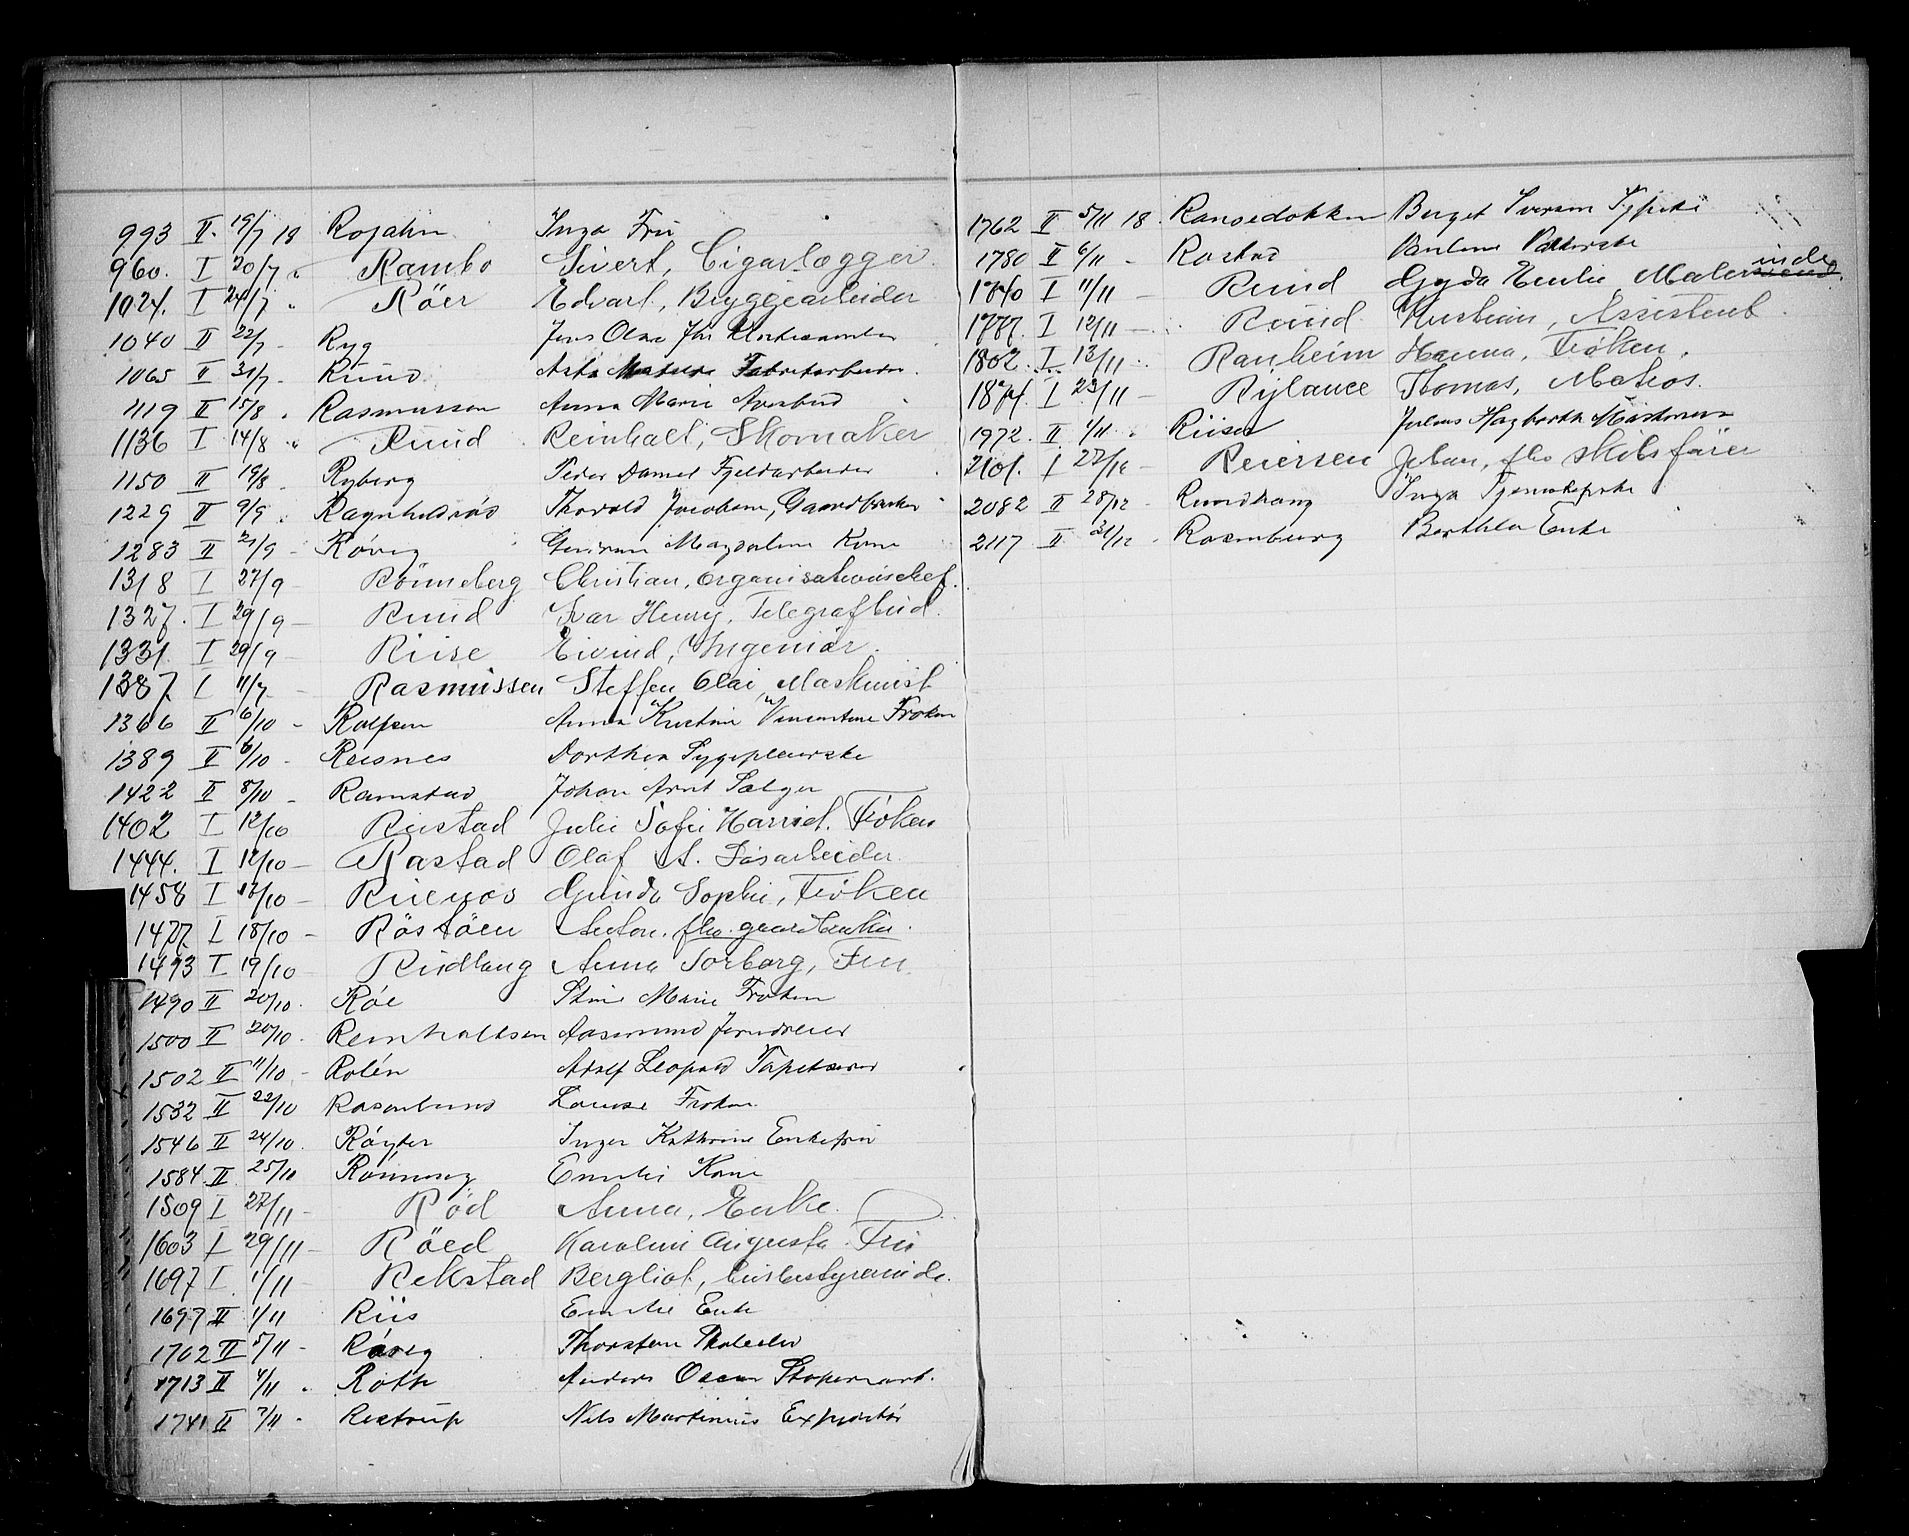 993 II. 19/7 18 Rojahn Inga Fru
960. I 20/7 " Rambo Sivert, Cigarlægger.
1021. I 21/7 " Röer Edvart, Bryggearbeider
1040 II 22/7 - Ryg Jens Olav
1065 II 31/7 - Ruud Fabrikarbeider
1119 II 15/8 " Rasmussen Anna Marie
1136 I 14/8 " Ruud Reinhalt, Skomaker
1150 II 19/8 . Ryberg Peder Daniel Fjeldarbeider
1229 II 9/9 . Ragnhildrød Thorvald Jacobsen, Gaardbruker
1283 II 21/9 - Røvig Gudrun Magdalene Kone
1318 I 27/9 - Rönneberg Christian, Organisationschef.
1327. I 29/9 - Ruud Ivar Henry, Telegrafbud.
1331. I 29/9 - Riise Eivind, Ingeniör.
1387 I 11/7 - Rasmussen Steffen Olai, Maskinist
1366 II 6/10 - Rolfsen Anna Kristine Vincentine Frøken
1389 II 6/10 - Reisnes Dorthea Sygepleierske
1422 II 8/10 - Ramstad Johan Arnt Sælger
1402 I 12/10 Rustad Julie Sofie Harriet. Fröken
1444. I 12/10 - Rastad Olaf A. Løsarbeider
1458 I 17/10 - Gunda Sophie, Fröken
1477 I 18/10 - Röstöen Anton. fhv. gaardbruker.
1493 I 19/10 Rudlang Anna Torborg, Fru
1490 II 20/10. Röe Stine Marie Frøken
1500 II 20/10. Reinholtsen Aasmund Jerndreier
1502 II 11/10 - Rolén Adolf Leopold Tapetserer
1532 II 22/10 Rosenlund Louise Frøken
1546 II 24/10. Røyter Inger Kathrine Enkefru
1584. II 25/10 Rønning Emilie Kone
1509 I 27/11 - Röd Anna, Enke.
1603 I 29/11 - Röed Karoline Augusta. Fru
1697 I. 1/11 - Rekstad Bergliot, Husbestyrerinde.
1697 II 1/11 Riis Emilie Enke
1702 II 5/11 - Røvig Thorstein Skoleelev
1713 II 4/11 . Roth Anders Oscar
1741 II 7/11 - Restrup Nils Martinius Expeditør
1762 II 5/11 18. Ransedokken Berget Iversen
1780 II 6/11 - Rostad
1740 I 11/11 - Ruud Gyda Emilie, Malerinde
1777. I 12/11 - Ruud Kristian, Assistent.
1802. I 13/11 . Ranheim Hanna, Fröken.
1874. I 23/11 - Rylance Thomas, Matros.
1972. II 1/11 . Riiser Julius Hagbarth
2101. I 27/12 - Reiersen Johan, fhv Skibsförer
2082 II 28/12 - Rundhaug Inga Syerske
2117 II 31/12 . Rosenburg Berthla Enke